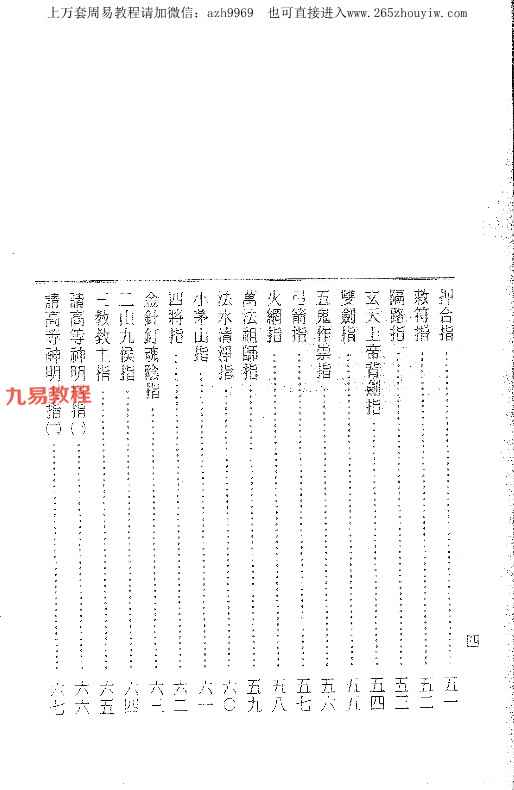 上万套周易教程请加微信：azh9969 也可直接进入www.265zhouyiw.com
押合指……五一
敕符指……五二
隔路指……五三
玄天上帝背劍指……五四
雙劍指……五五
五鬼作祟指……五六
弓箭指……五七
火網指……五八
萬法祖師指……五九
法水清淨指……六〇
小茅山指……六一
四將指……六二
金針釘魂陰指……六三
二山九侯指……六四
三教教主指……六五
請高等神明指㈠……六六
請高等神明指㈡……六七
四
九易教程